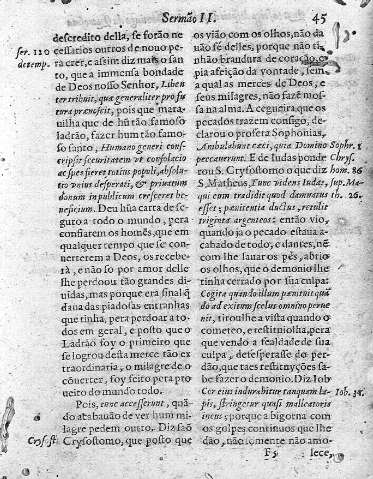 Sermão II. 45
descredito della, se forão ne
ser. 120 cessarios outros de novo pe
de temp. ra crer, e assim diz mais o san
to, que a immensa bondade
de Deos nosso Senhor, Liben
ter tribuit, que generaliter pro fu
tura præscit, pois que mara
uilha que de hũ tão famoso
ladrão, fazer hum tão famo
so santo, Humano generi con
scripsit securitatem vt consolacio
ac spes fieret totius populi, absolu
tio vnius desperati, & priuatum
donum in publicum cresceret be
neficium. Deu hũa carta de segu
ro a todo o mundo, pera
confiarem os homẽs, que em
qualquer tempo que se con
uerterem a Deos, os recebe
rà, e não so por amor delle
lhe perdoou tão grandes di
uidas, mas porque era final q̃
daua das piadosas entranhas
que tinha, pera perdoar a to
dos em geral, e posto que o
Ladrão foy o primeiro que
se logrou desta merce tão ex
traordinaria, o milagre de o
cõuerter, foy feito pera pro
ueito do mundo todo.
Pois, tunc accesserunt, quã
do acabauão de ver hum mi
lagre pedem outro. Diz são
Crysost. Crysostomo, que posto que
os vião com os olhos, não da
uão fé delles, porque não ti
nhão brandura de coração, e
pia afeição da vontade, sem
a qual as merces de Deos, e
seus milagres, não fazẽ mos
sa na alma. A cegueira que os
pecados trazem consigo, de
clarou o profeta Sophonias,
Ambulabunt cæci, quia Domino Sophr. 1
peccauerunt. E de Iudas ponde Chrys.
rou S. Crysostomo o que diz hom. 86
S. Matheus, Tunc videns Iudas, sup. Ma
qui eum tradidit quod damnatus th. 26.
esset; pœnitentia ductus, retulit
triginta argenteos: então vio,
quando ja o pecado estaua a
cabado de todo, e dantes, nẽ
com lhe lauar os pês, abrio
os olhos, que o demonio lhe
tinha cerrado por sua culpa:
tiroulhe a vista quando o
cometeo, e restituiolha, pera
que vendo a fealdade de sua
culpa, desesperasse do per
dão, que taes restituyções sa
be fazer o demonio. Diz Iob
Cor eius indurabitur tanquam la- Iob. 41.
pis, stringetur quasi malleatoris
incus; porque a bigorna com
os golpes continuos que lhe
dão, não somente não amo-
F 5 lece,